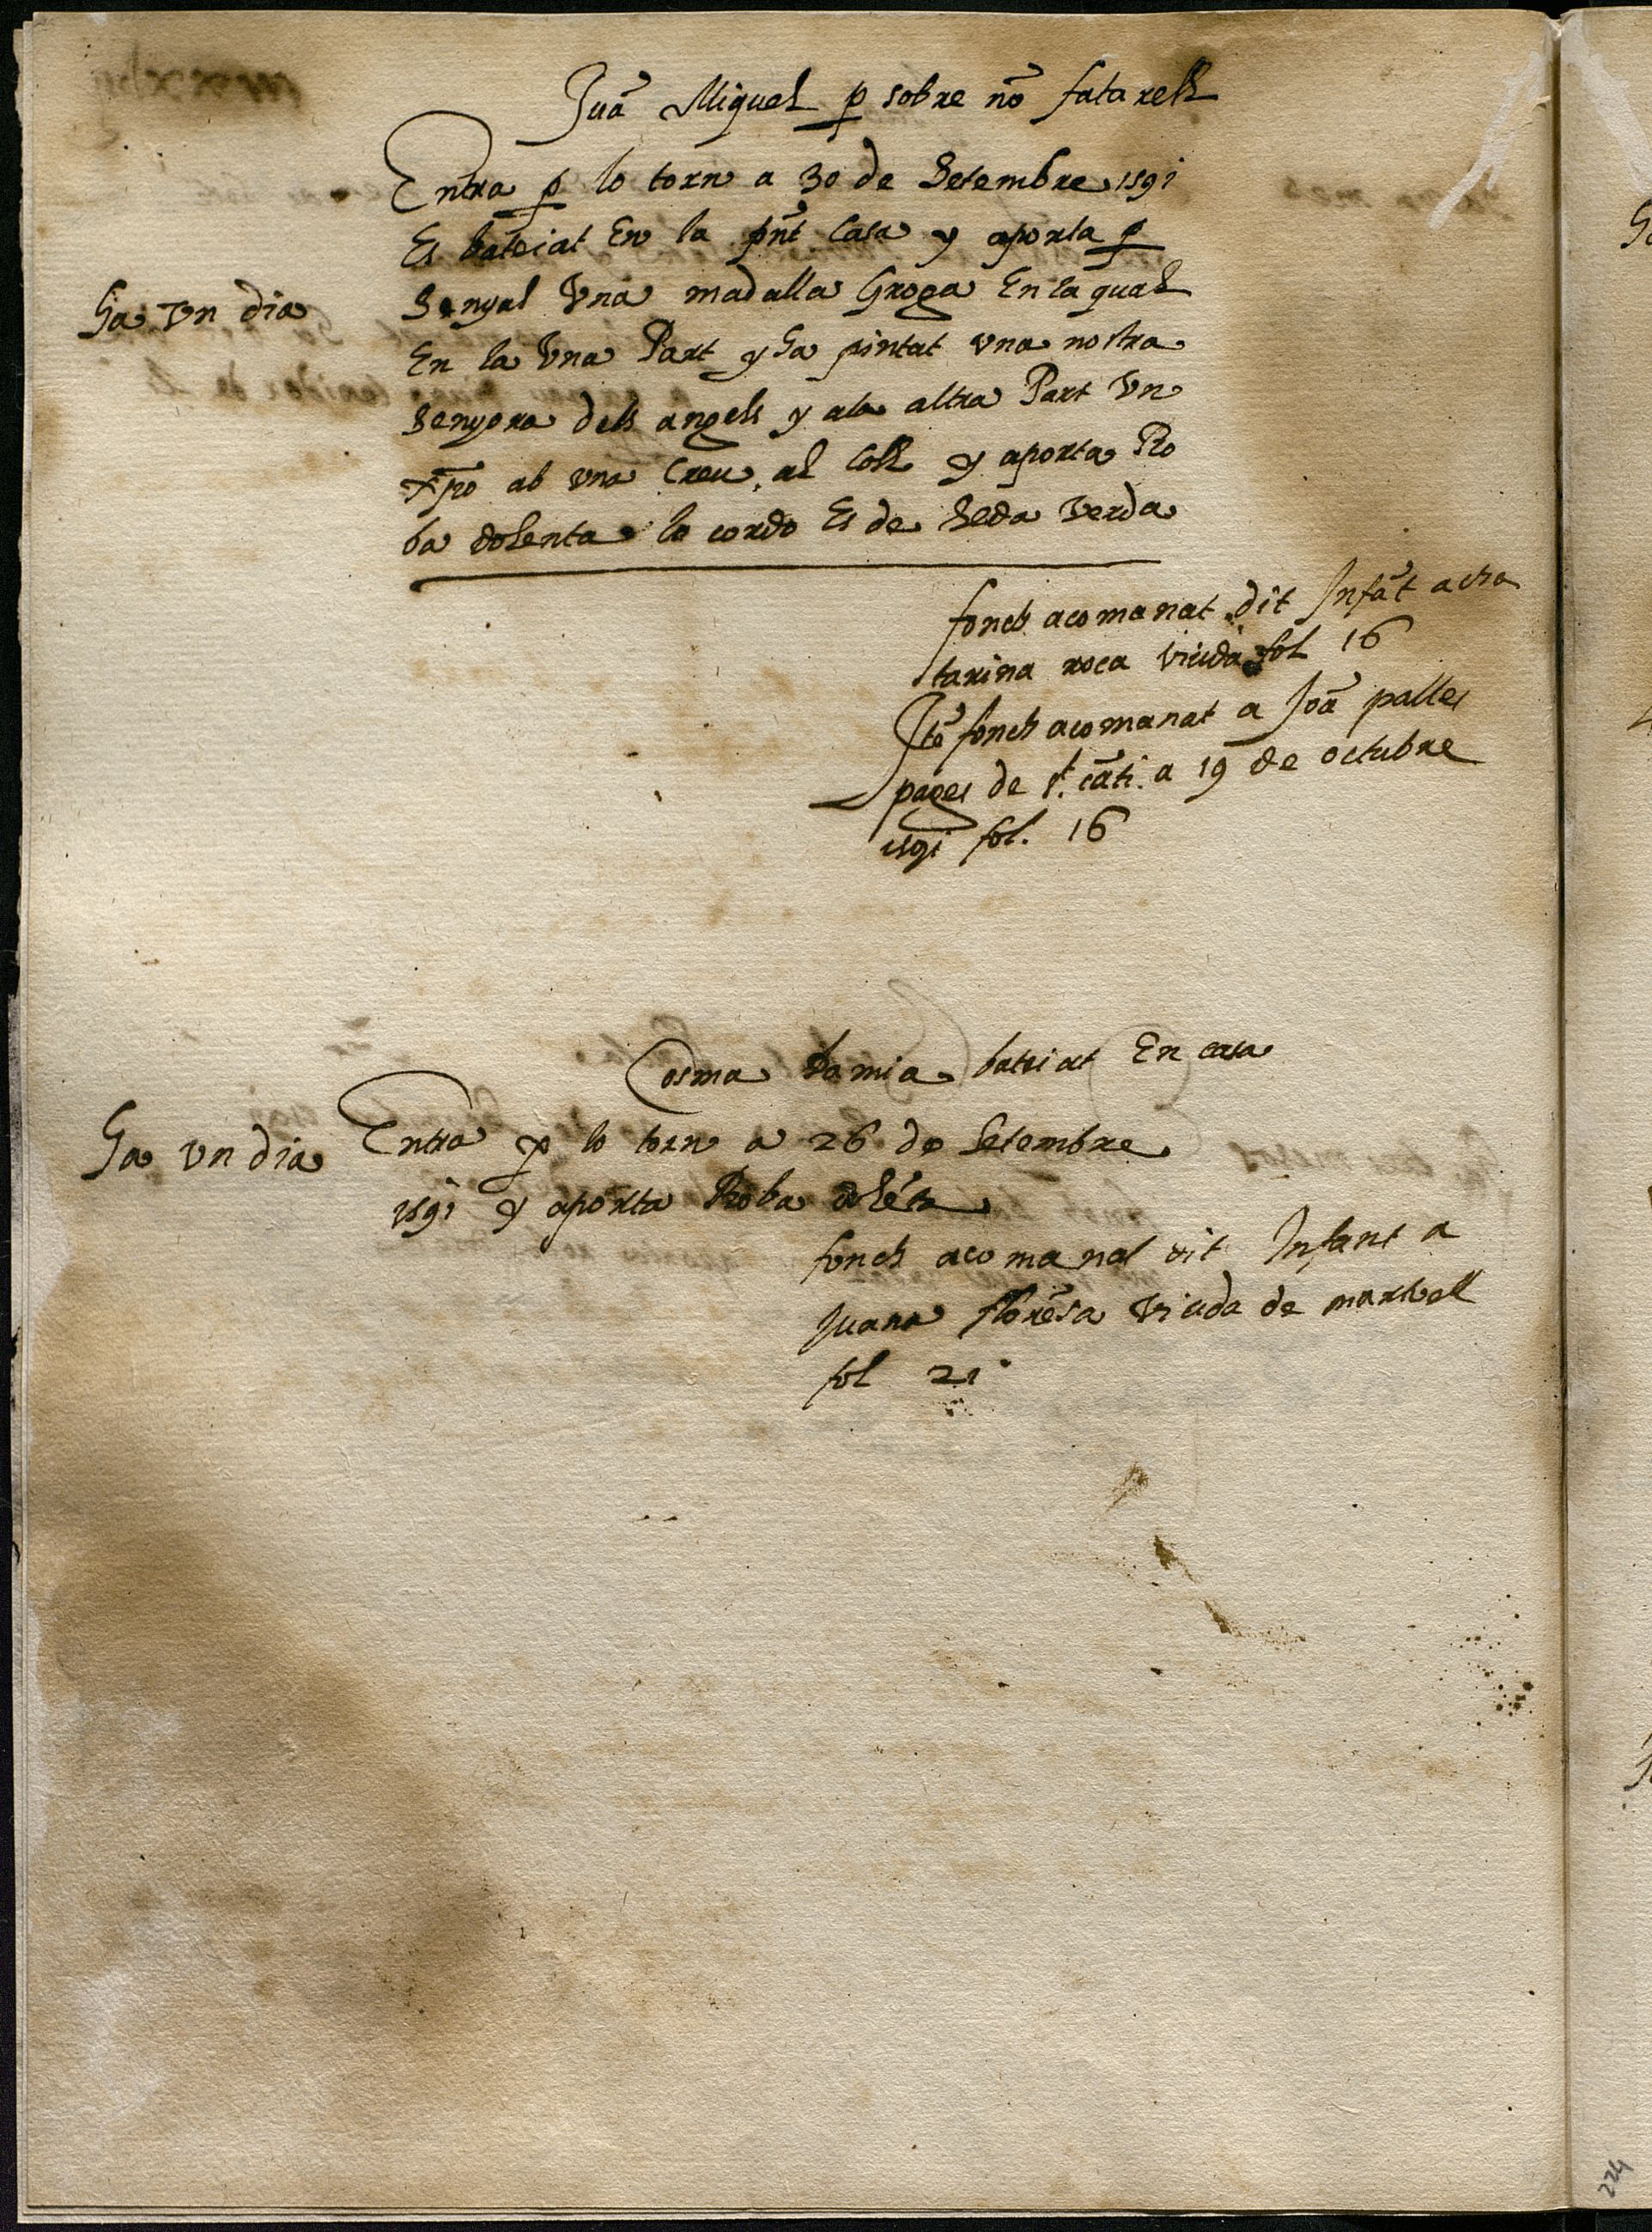 Juā Miguel p sobre nō fatarell
Entra p lo torn a 30 de Setembre 1591
Es batetiat En la pn̄t Casa y aporta p
Ha Vn dia
Senyal Vna madalla Groga En la qual
En la Vna Part y ha pintat vna nostra
Senyora dels angels y ala altra Part Vn
xp̄o ab vna Creu al Coll y aporta Ro
ba dolenta lo cordo Es de Seda Verda
fonch acomanat dit Infāt a cha
tarina roca viuda fol 16
Itē fonch acomanat a Joā palles
pages de st. cāti. a 19 de octubre
1591 fol. 16
Cosma Damia batiat En casa
Ha vn dia
Entra p lo torn a 26 de Setembre
1591 y aporta Roba dolēta
fonch acomanat dit Infant a
Juana florēsa Viuda de martorell
fol 21
224